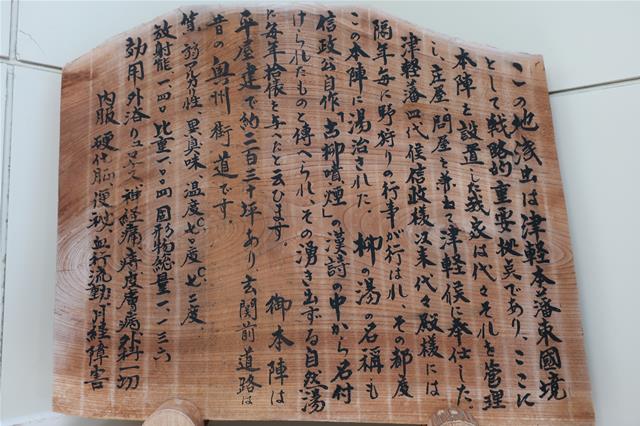 この地浅虫は津軽本藩東國境
として戦略的重要拠点であり、ここに
本陣を設置した我家は代々それを管理
し、庄屋、問屋を兼ね津軽侯に奉仕した
津軽藩四代侯信政様以来代々殿様には
隔年毎に野狩りの行事が行はれ、その都度
この本陣に湯治された、柳の湯の名稱も
信政公自作「古柳噴煙」の漢詩の中から名付
けられたものと傳へられ、その湧き出ずる自然湯
に毎年拾俵を与へたと云ひます。御本陣は
平屋建で約二百三十坪あり、玄関前道路は
昔の奥州街道です。
弱アルカリ性、異臭味、温度七〇度C、七三度C
放射能、一、四〇 比重一、〇〇四 固形物総量一、一三六
効用 外浴 リュウマチス、神経痛、痔、皮膚病、外科一切
内服 便秘、血行流動、月経障害